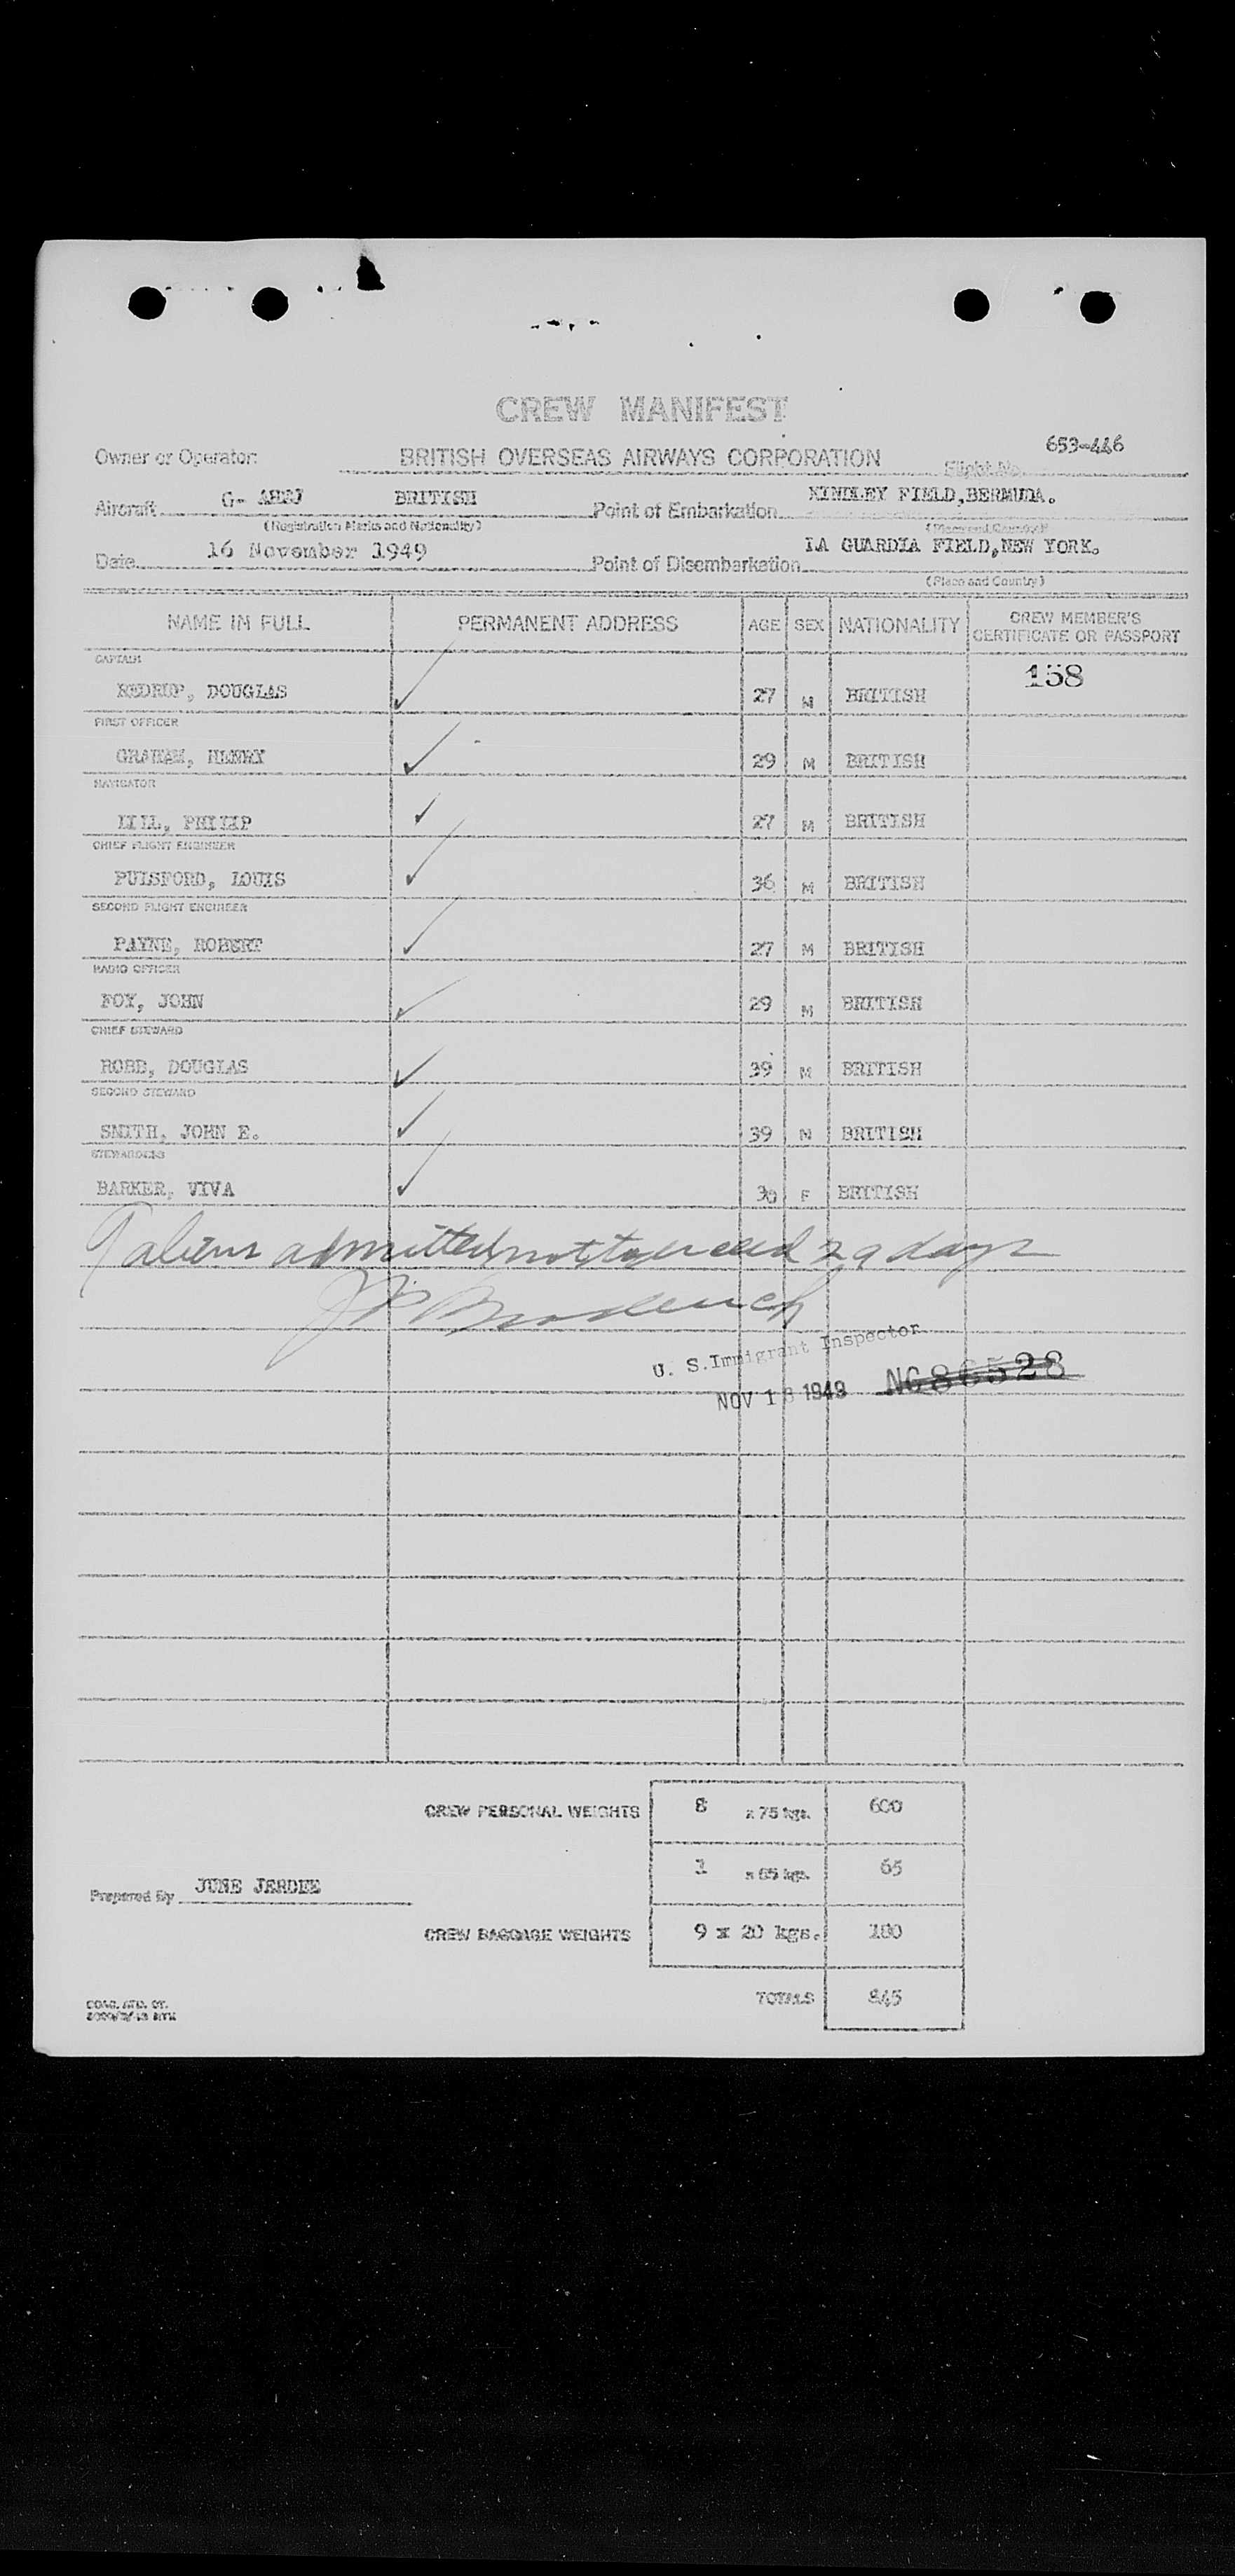 CREW MANIFEST
653-446
Owner or Operator: BRITISH OVERSEAS AIRWAYS CORPORATION Flight No.
Aircraft G- BRITISH Point of Embarkation KINDLEY FIELD,BERMUDA.
(Registration Marks and Nationality) (Place and Country)
Date 16 November 1949 Point of Disembarkation LA GUARDIA FIELD,NEW YORK.
(Place and Country)
NAME IN FULL PERMANENT ADDRESS AGE SEX NATIONALITY CREW MEMBER'S CERTIFICATE OR PASSPORT
CAPTAIN
158
REDRUP, DOUGLAS 27 M BRITISH
FIRST OFFICER
GRAHAM, HENRY 29 M BRITISH
NAVIGATOR
PHILIP 27 M BRITISH
CHIEF FLIGHT ENGINEER
PULSFORD, LOUIS 36 M BRITISH
SECOND FLIGHT ENGINEER
PAYNE, ROBERT 27 M BRITISH
RADIO OFFICER
FOX, JOHN 29 M BRITISH
CHIEF STEWARD
ROBB, DOUGLAS 39 M BRITISH
SECOND STEWARD
SMITH, JOHN E. 39 M BRITISH
STEWARDESS
BARKER, VIVA 30 F BRITISH
9 aliens admitted not to exceed 29 days
U. S. Immigrant Inspector
NOV 1 1949 86528
CREW PERSONAL WEIGHTS 8 x 75 kgs. 600
1 x 65 kgs. 65
Prepared By JUNE
CREW BAGGAGE WEIGHTS 9 x 20 kgs. 180
TOTALS 845